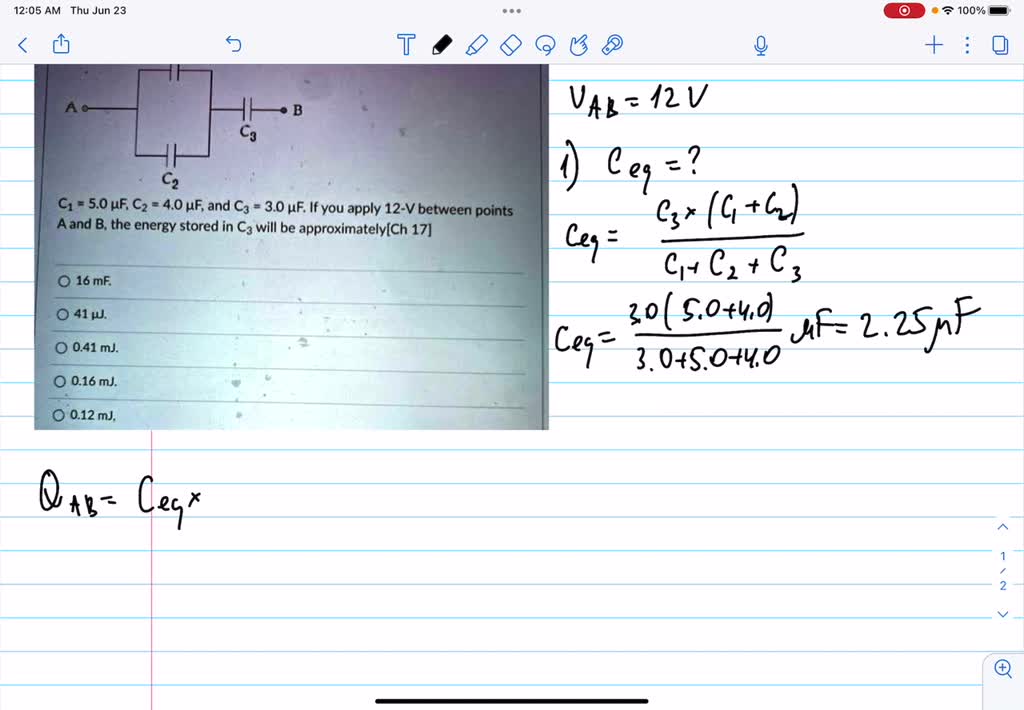 12:05 AM Thu Jun 23
100%
T
A
B
C₃
C₂
C₁ = 5.0 μF, C₂ = 4.0 μF, and C₃ = 3.0 μF. If you apply 12-V between points
A and B, the energy stored in C₃ will be approximately[Ch 17]
16 mF.
41 μJ.
0.41 mJ.
0.16 mJ.
0.12 mJ,
V_AB = 12 V
1) C_eq = ?
C_eq = C₃ × (C₁ + C₂) / C₁ + C₂ + C₃
C_eq = 3.0 ( 5.0+4.0) / 3.0+5.0+4.0 μF = 2.25 μF
Q_AB = C_eq ×
1
/
2